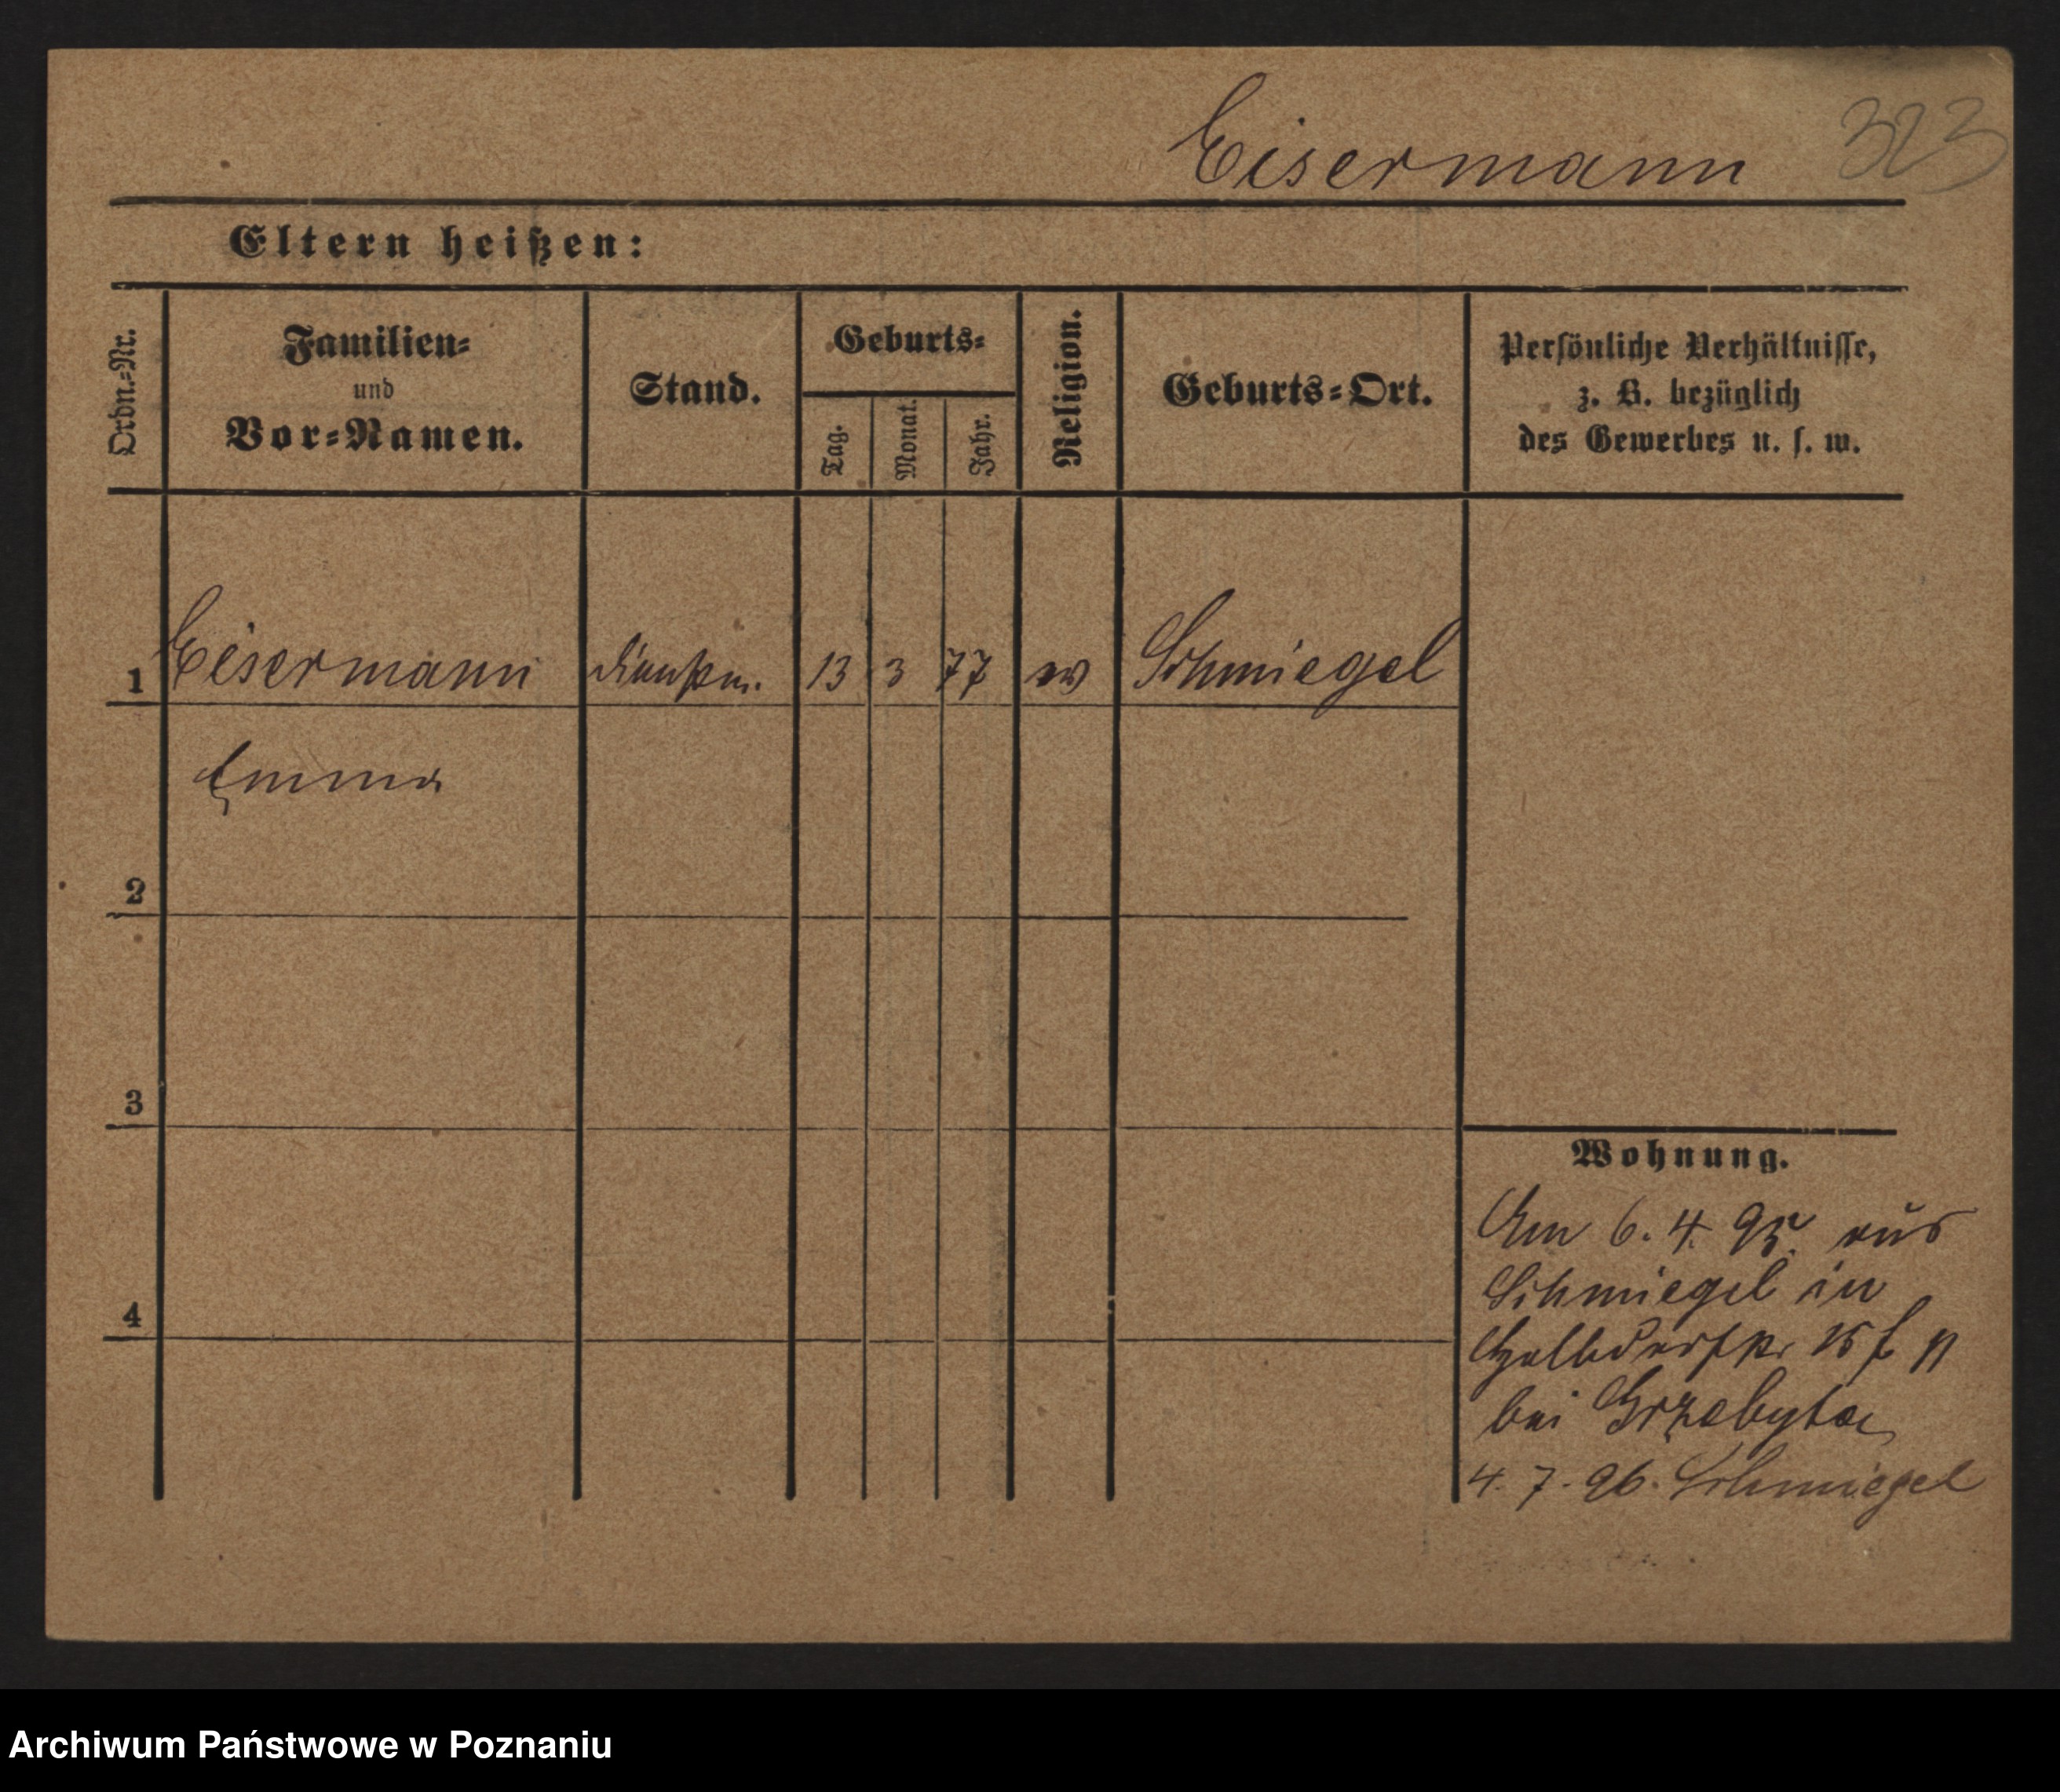 Eisermann 323
Eltern heißen:
Ordn.-Nr.
Familien-
und
Vor-Namen.
Stand.
Geburts-
Tag.
Monat.
Jahr.
Religion.
Geburts-Ort.
Persönliche Verhältnisse,
z. B. bezüglich
des Gewerbes u. s. w.
1 Eisermann 13 3 77 ev Schmiegel
Emma
2
3
4
Wohnung.
Am 6. 4. 95. aus
Schmiegel in
Halbdorfstr 15
bei
4. 7. 96. Schmiegel
Archiwum Państwowe w Poznaniu